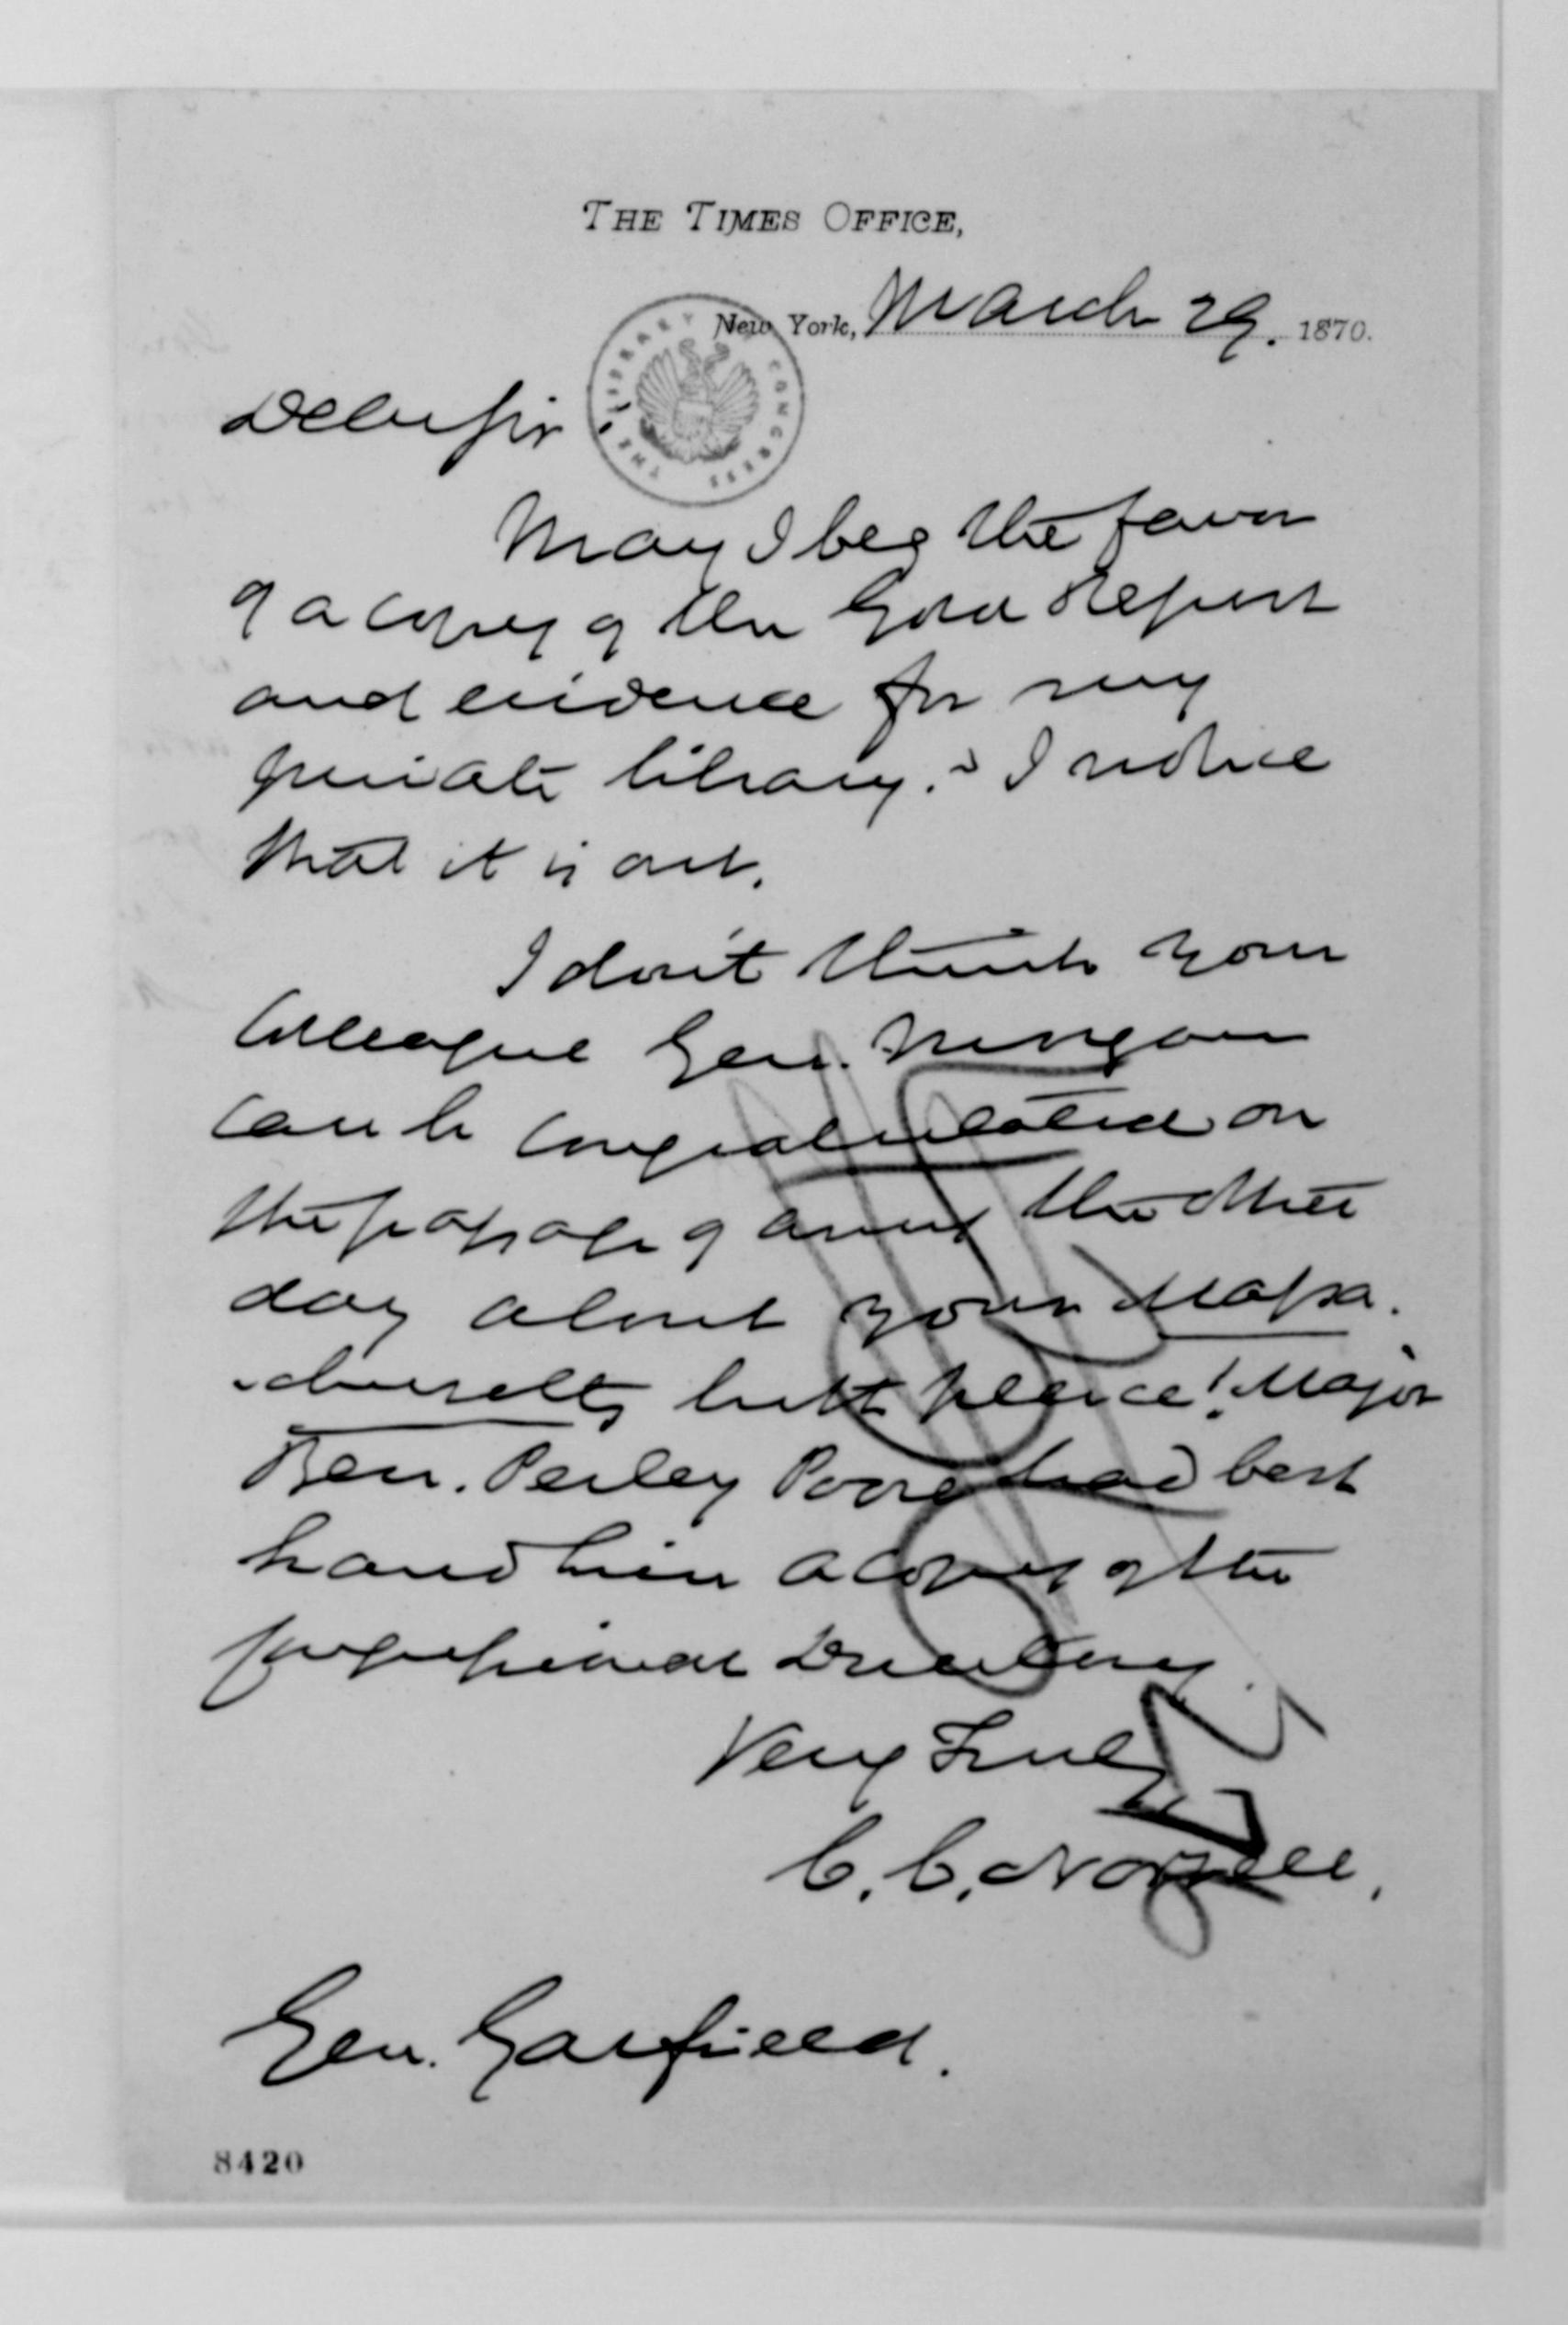 THE TIMES OFFICE,
New York, March 29. 1870.
THE LIBRARY CONGRESS
Dear Sir
May I beg the favor
of a copy of the Gold Report
and evidence for my
private library? I notice
that it is out.
I don't think your
Colleague Gen. Mungen
can be congratulated on
the passage of arms the other
day about your Massa-
chusetts birth place! Major
Ben. Perley Poore had best
hand him a copy of the
Congressional Directory.
Very Truly
C. C. Norvell.
Gen. Garfield.
8420